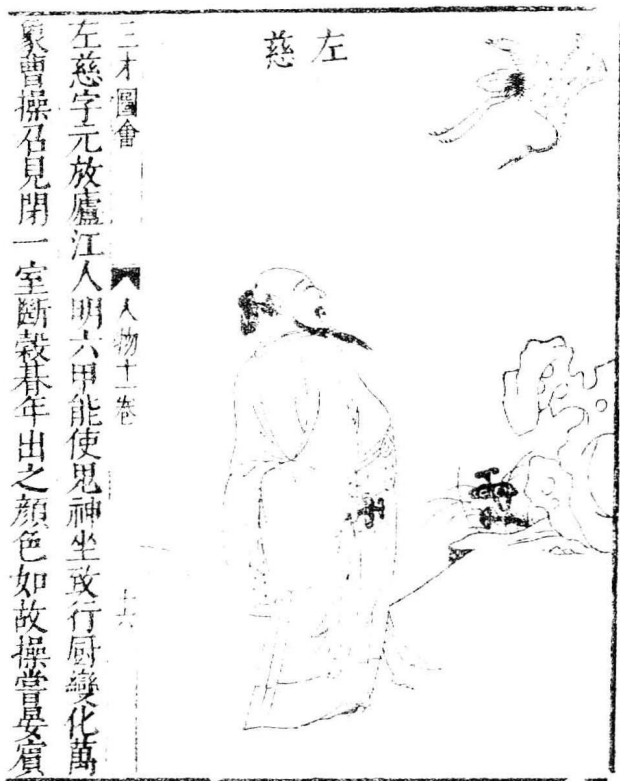 左慈
三才圖會 人物十一卷 十六
左慈字元放廬江人明六甲能使鬼神坐致行厨變化萬
象曹操召見閉一室斷穀朞年出之顏色如故操嘗晏賓